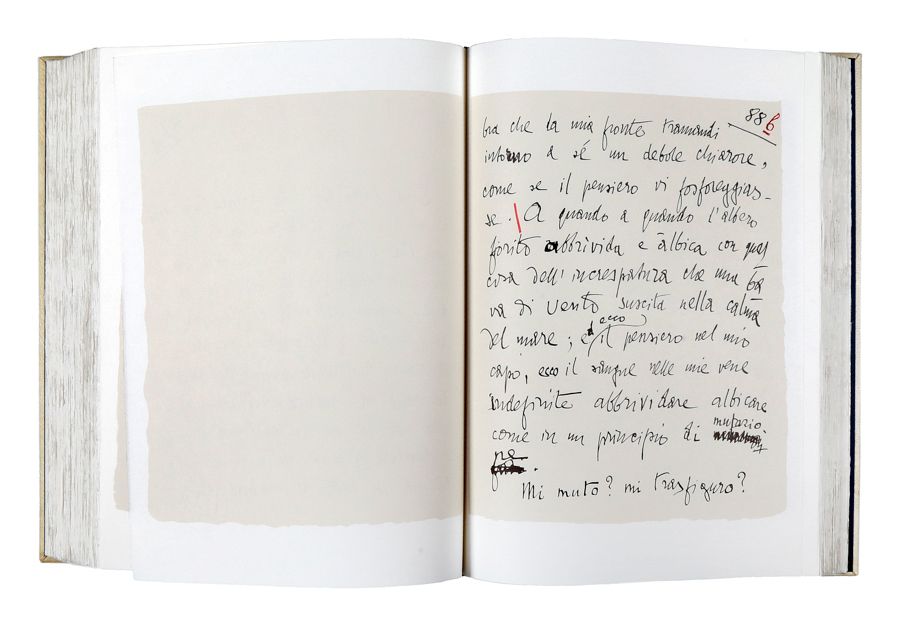 88b
bra che la mia fronte tramandi
intorno a sé un debole chiarore,
come se il pensiero vi fosforeggias-
se. | A quando a quando l'albero
fiorito abbrivida e albica con qual
cosa dell'increspatura che una ba
va di vento suscita nella calma
del mare; ed ecco il pensiero nel mio
capo, ecco il sangue nelle mie vene
indefinite abbrividare albicare
come in un principio di
Mi muto? mi trasfiguro?